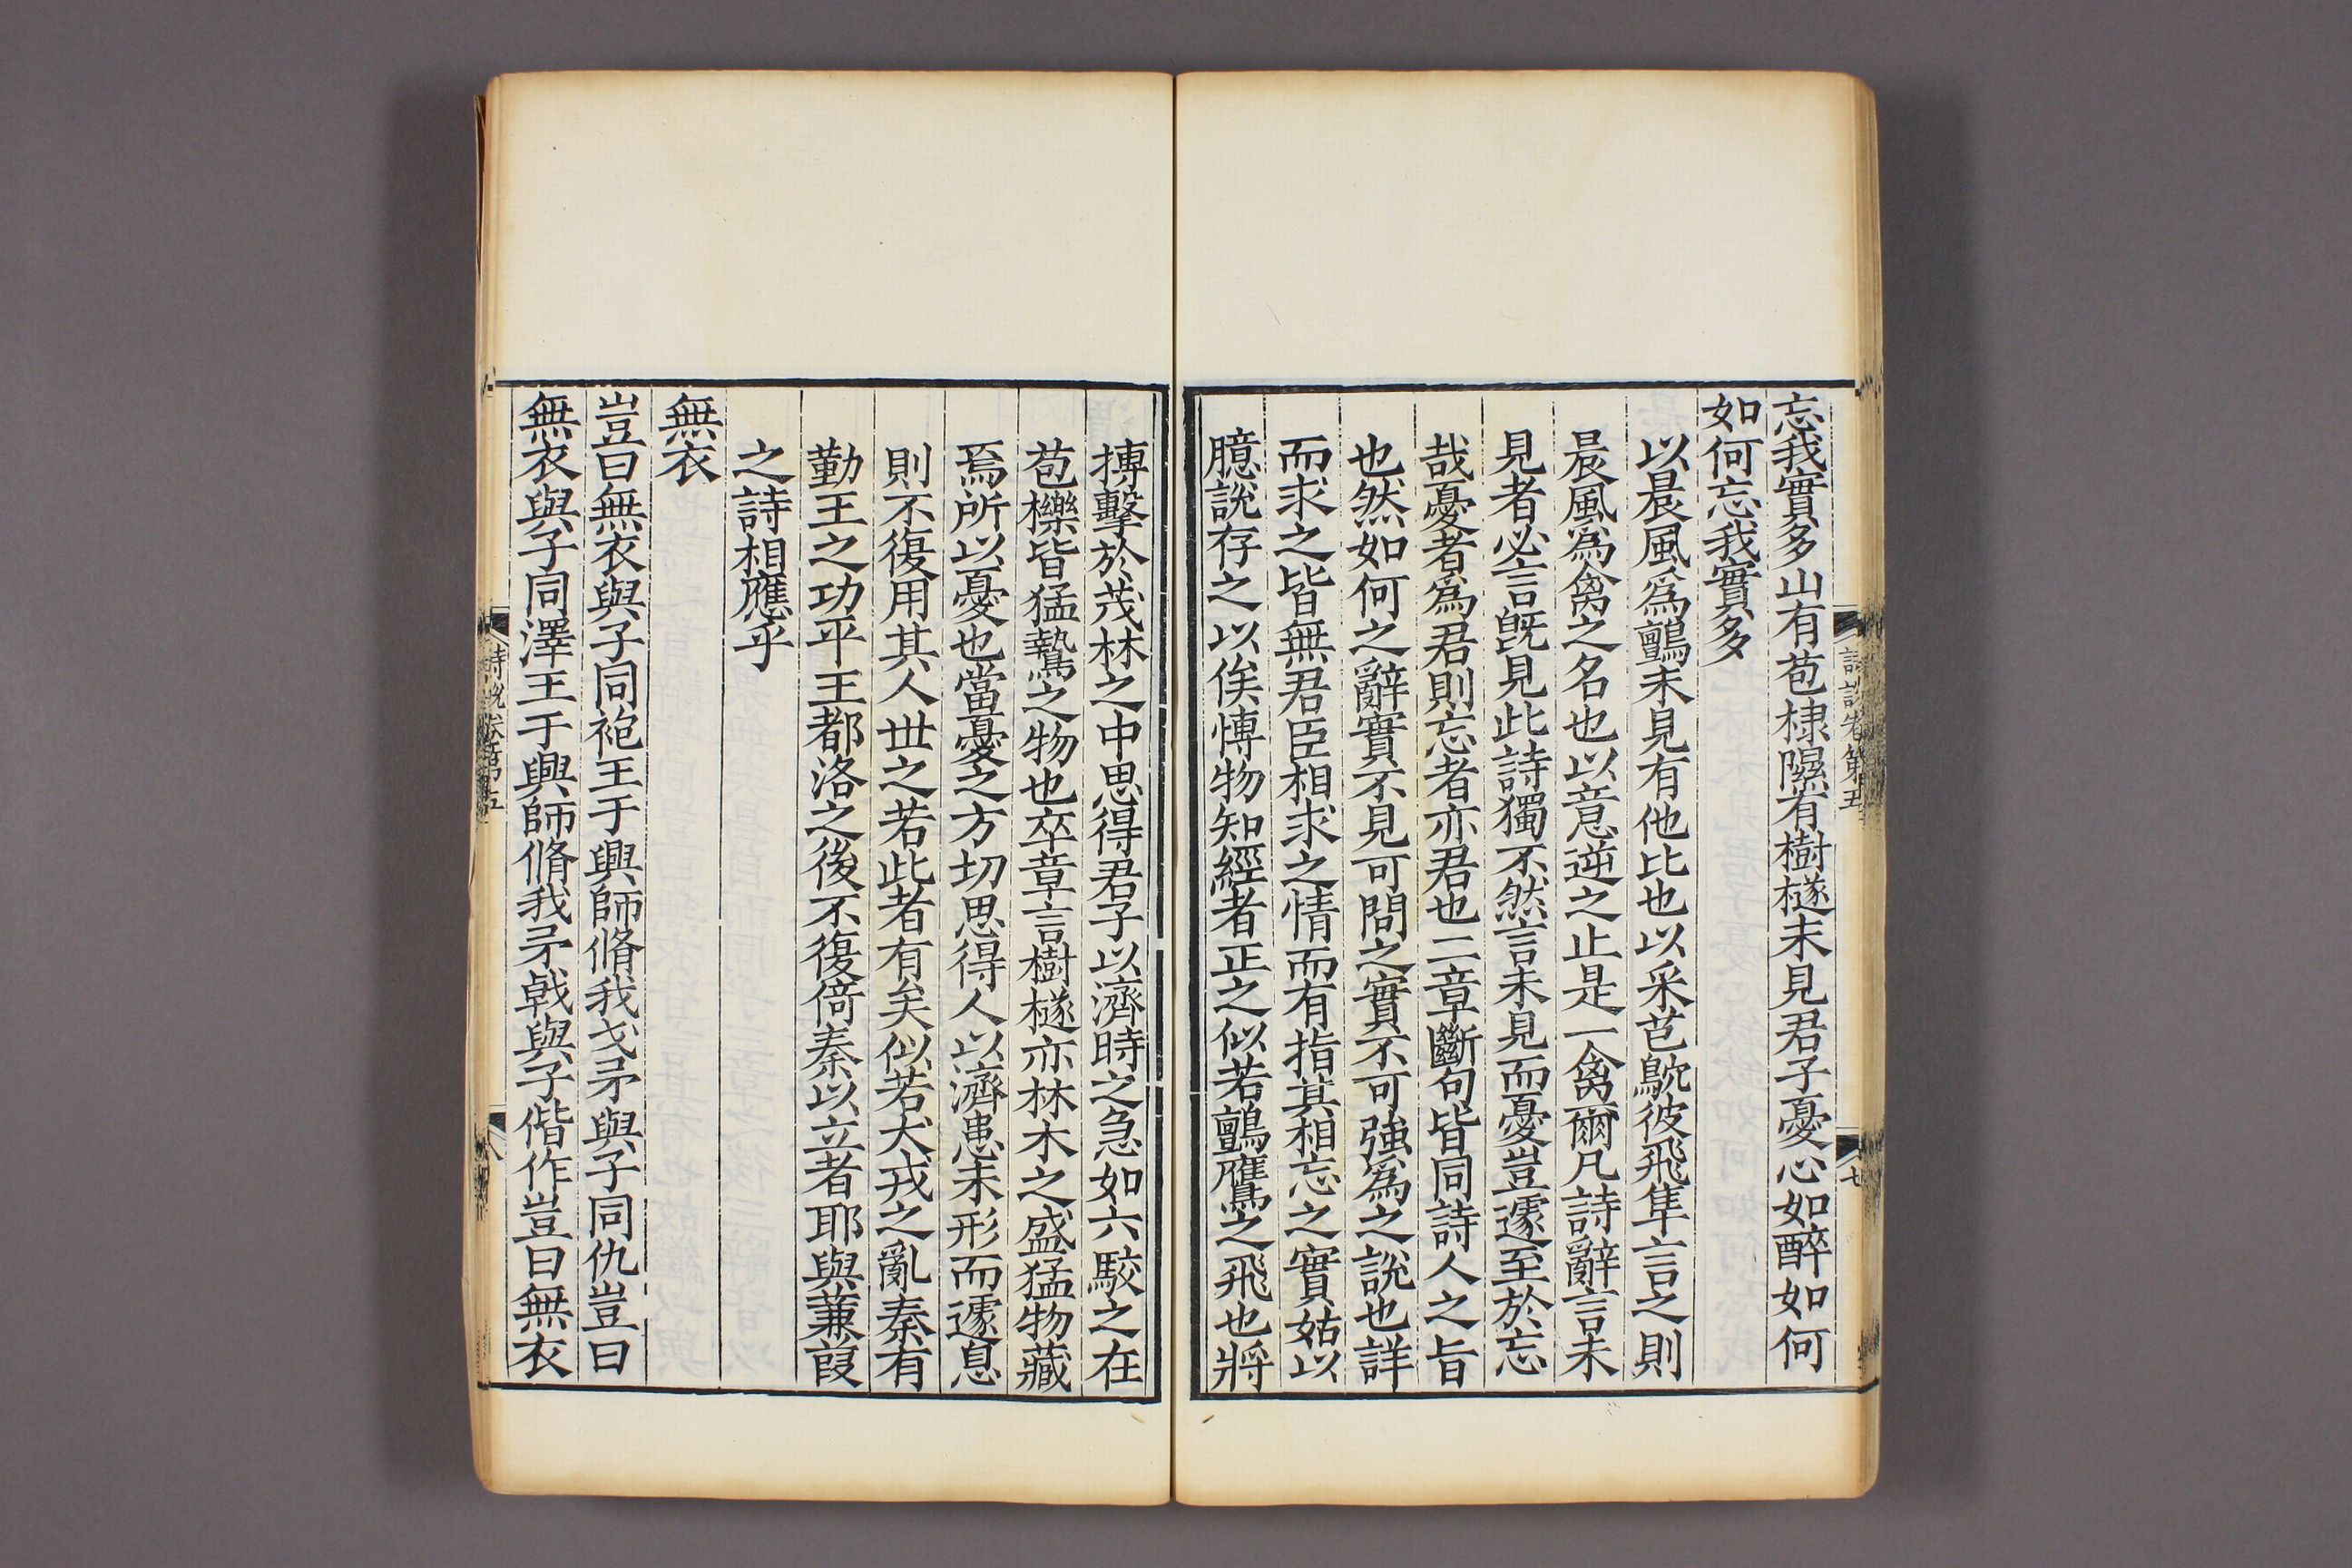 詩說卷第五
七
忘我實多山有苞棣隰有樹檖未見君子憂心如醉如何
如何忘我實多
以晨風爲鸇未見有他比也以采芑鴥彼飛隼言之則
晨風爲禽之名也以意逆之止是一禽爾凡詩辭言未
見者必言旣見此詩獨不然言未見而憂豈遽至於忘
哉憂者爲君則忘者亦君也二章斷句皆同詩人之旨
也然如何之辭實不見可問之實不可強爲之說也詳
而求之皆無君臣相求之情而有指其相忘之實姑以
臆說存之以俟愽物知經者正之似若鸇鷹之飛也將
摶擊於茂林之中思得君子以濟時之急如六駮之在
苞櫟皆猛鷙之物也卒章言樹檖亦林木之盛猛物藏
焉所以憂也當憂之方切思得人以濟患未形而遽息
則不復用其人世之若此者有矣似若犬戎之亂秦有
勤王之功平王都洛之後不復倚秦以立者耶與蒹葭
之詩相應乎
無衣
豈曰無衣與子同袍王于興師脩我戈矛與子同仇豈曰
無衣與子同澤王于興師脩我矛戟與子偕作豈曰無衣
詩說卷第五